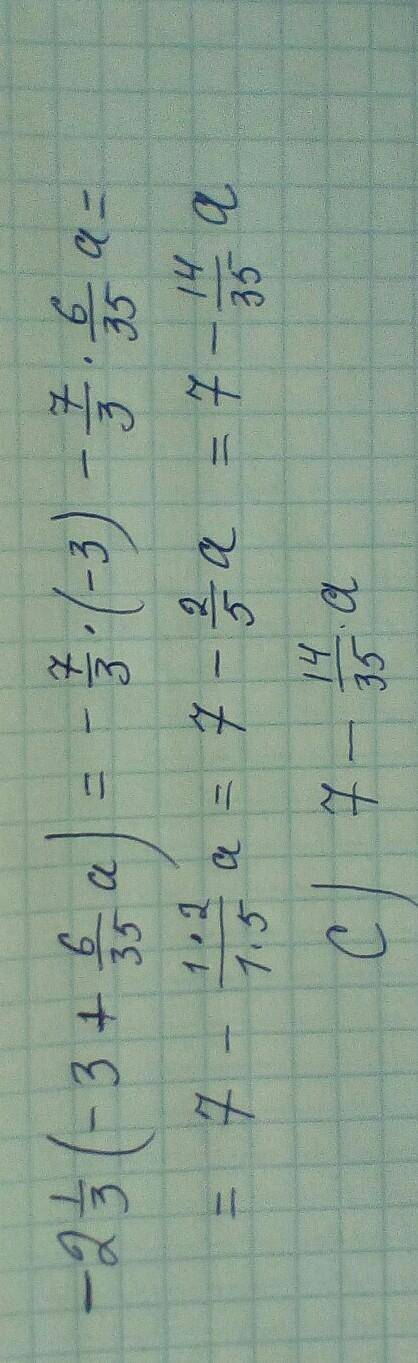 -2 1/3 (-3 + 6/35 a) = - 7/3 · (-3) - 7/3 · 6/35 a =
= 7 - 1·2/1·5 a = 7 - 2/5 a = 7 - 14/35 a
C) 7 - 14/35 · a